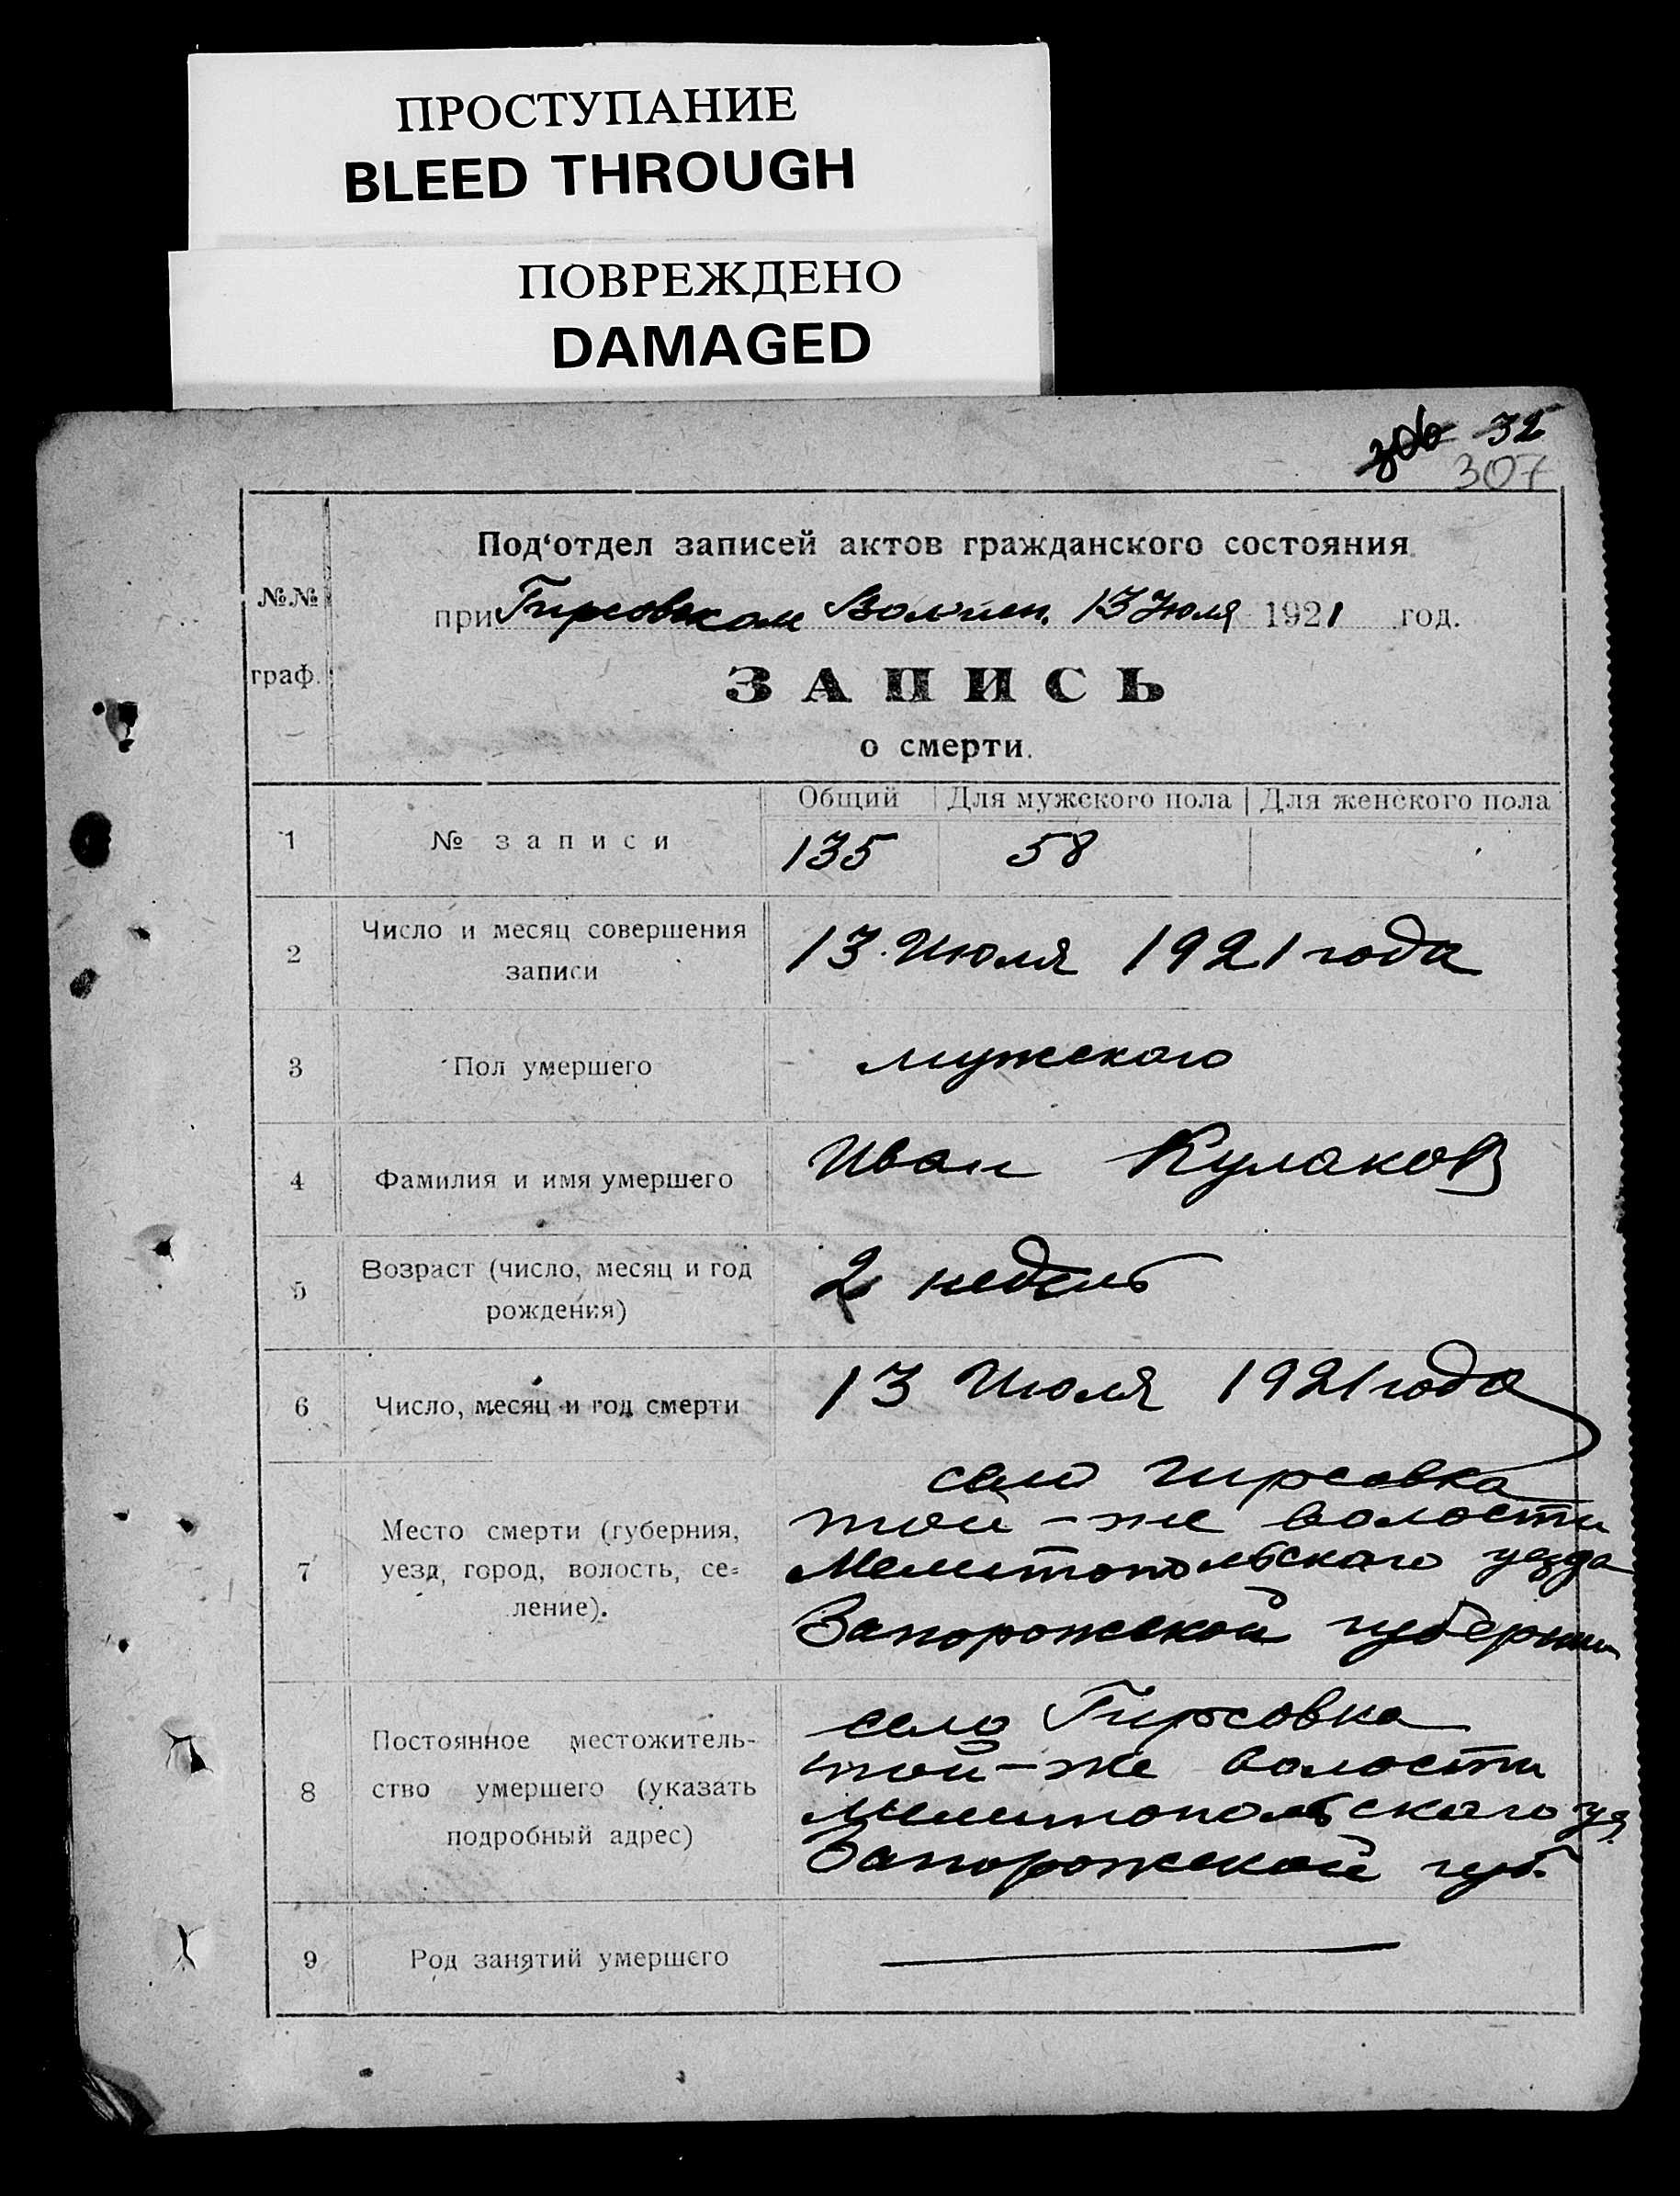 ПРОСТУПАНИЕ
BLEED THROUGH
ПОВРЕЖДЕНО
DAMAGED
306 32
307
№№ граф.
Под‘отдел записей актов гражданского состояния
при Гирсовском Волисп. 13 Июля 1921 год.
ЗАПИСЬ
о смерти.
Общий Для мужского пола Для женского пола
1 № записи 135 58
2 Число и месяц совершения
записи 13 Июля 1921 года
3 Пол умершего мужского
4 Фамилия и имя умершего Иван Кулаков
5 Возраст (число, месяц и год
рождения) 2 недель
6 Число, месяц и год смерти 13 Июля 1921 года
7 Место смерти (губерния,
уезд, город, волость, се-
ление).
село Гирсовка
той-же волости
Мелитопольского уезда
Запорожской губернии
8 Постоянное местожитель-
ство умершего (указать
подробный адрес)
село Гирсовка
той-же волости
Мелитопольского уз.
Запорожской губ.
9 Род занятий умершего